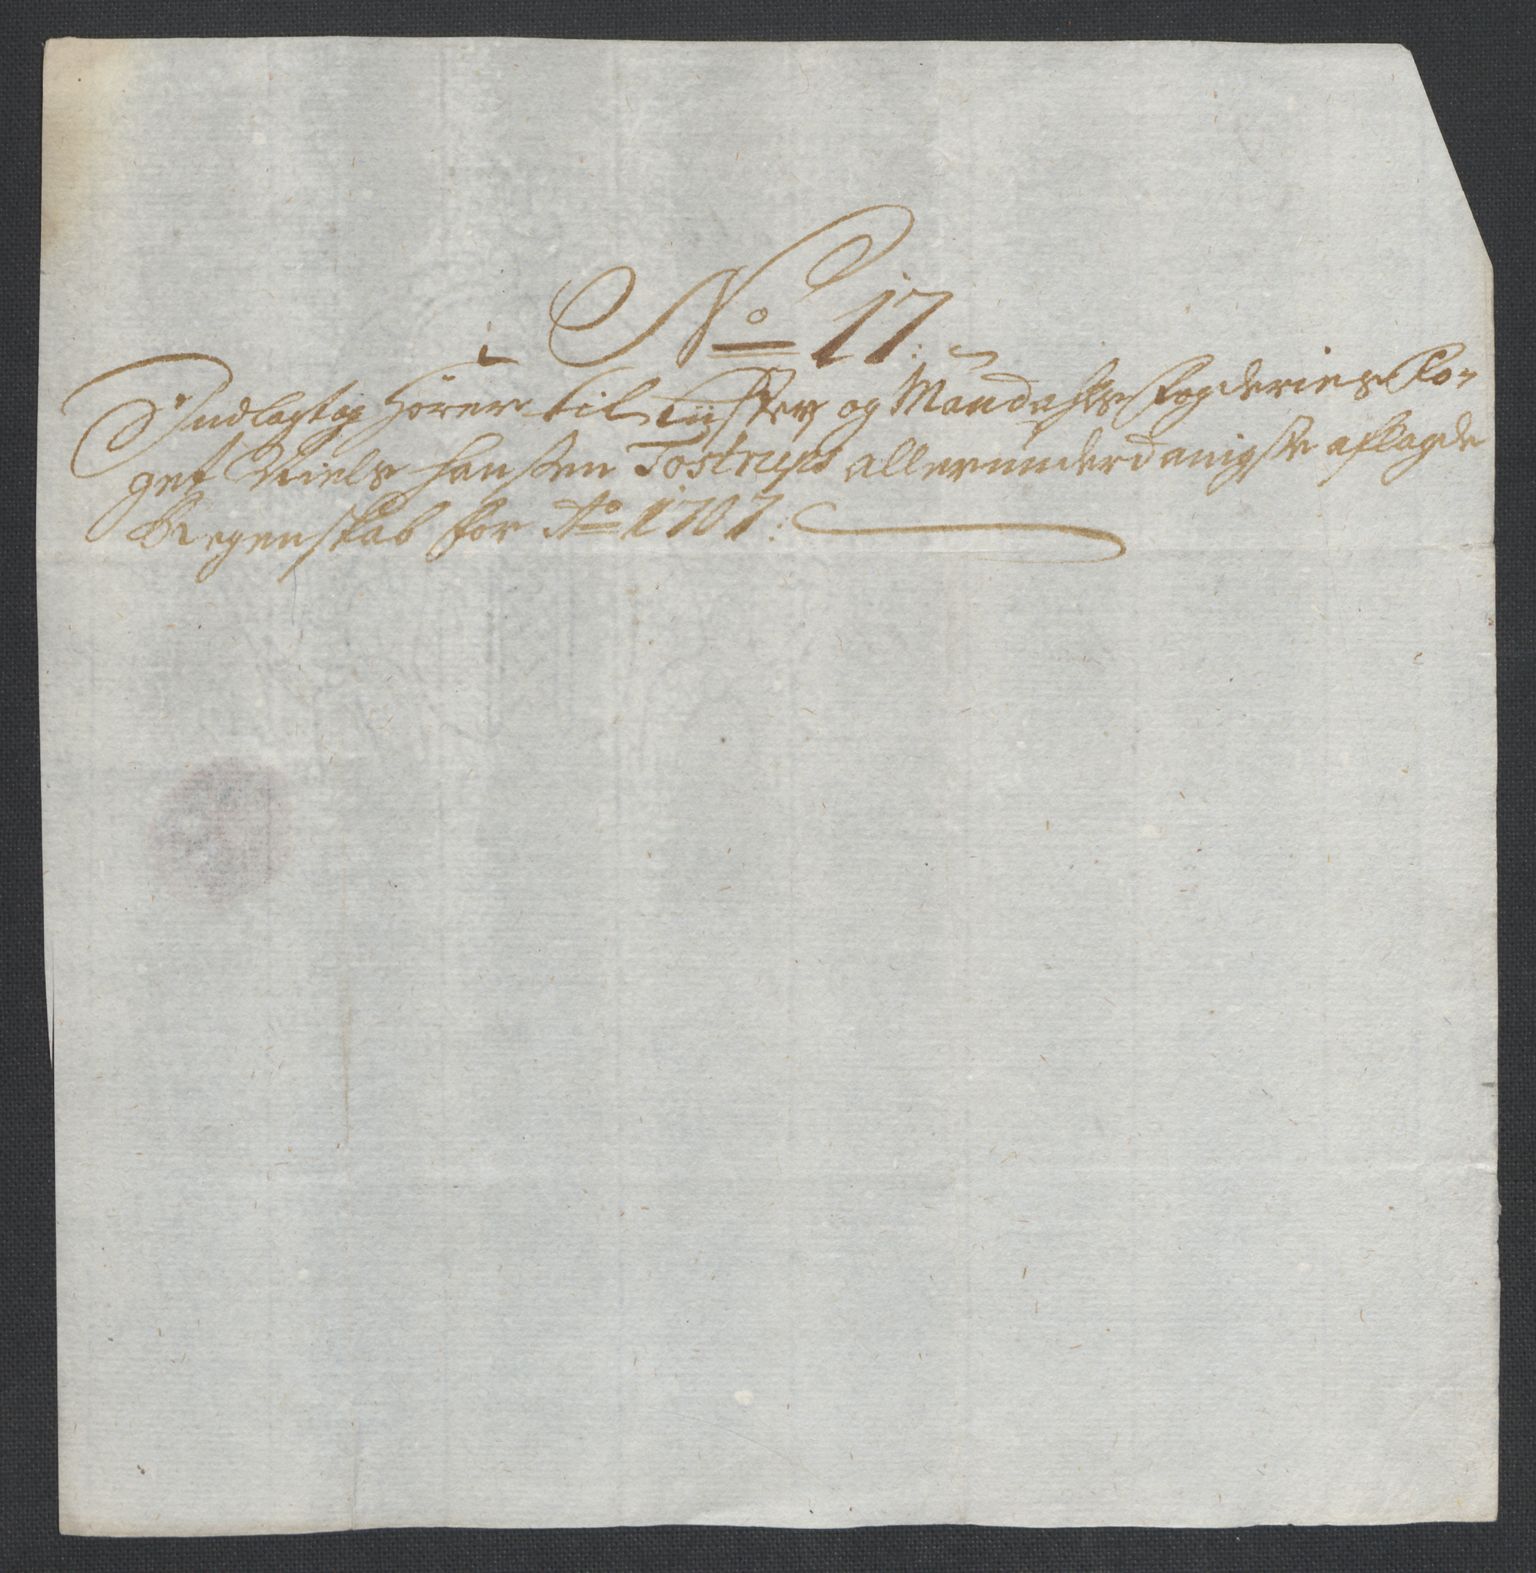 No 17:
Indlagt og hører til Lister og Mandahls Fogderies Fo-
get Niels Hanßen Tostrups allerunderdanigste aflagde
Regenskab for Ao 1707: